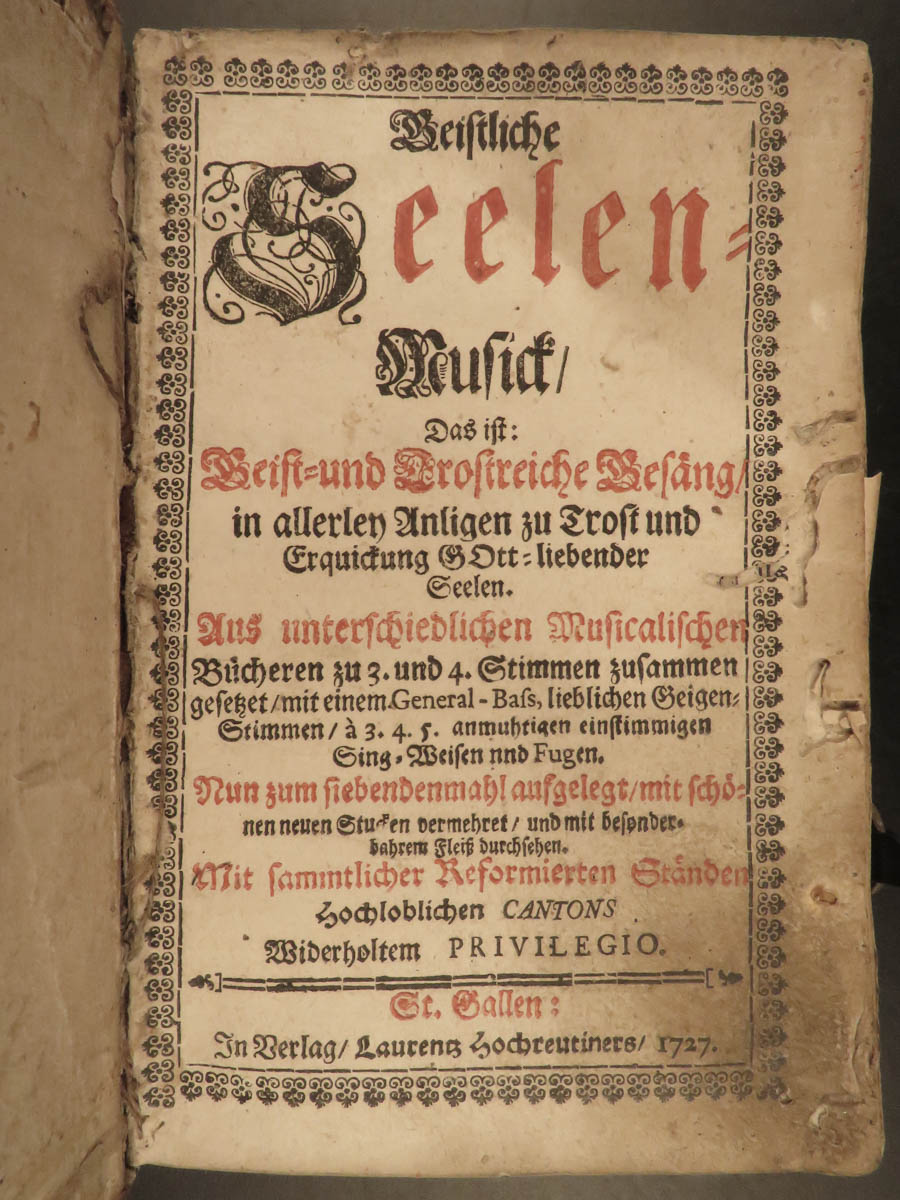 Geistliche
Seelen-
Musick/
Das ist:
Geist-und Trostreiche Gesäng/
in allerley Anligen zu Trost und
Erquickung GOtt-liebender
Seelen.
Aus unterschiedlichen Musicalischen
Bücheren zu 3. und 4. Stimmen zusammen
gesetzet/mit einem General-Bass, lieblichen Geigen-
Stimmen/ à 3. 4. 5. anmuhtigen einstimmigen
Sing-Weisen nnd Fugen.
Nun zum siebendenmahl aufgelegt/mit schö-
nen neuen Stucken vermehret/ und mit besonder-
bahrem Fleiß durchsehen.
Mit sammtlicher Reformierten Ständen
Hochloblichen CANTONS
Widerholtem PRIVILEGIO.
St. Gallen:
In Verlag/ Laurentz Hochreutiners/ 1727.